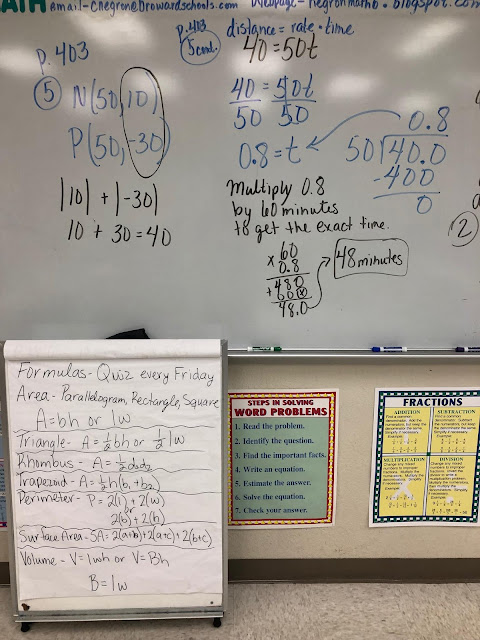 ATH email-cnegron@browardschools.com Webpage-negronmath6.blogspot.com
p.403
5
N(50,10)
P(50,-30)
|10| + |-30|
10 + 30 = 40
p.403
5 cont.
distance = rate · time
40 = 50t
40 = 50t
50 50
0.8 = t
0.8
50 40.0
-400
0
Multiply 0.8
by 60 minutes
to get the exact time.
60
x 0.8
480
+ 00x
48.0
48 minutes
2
Formulas - Quiz every Friday
Area - Parallelogram, Rectangle, Square
A = bh or lw
Triangle - A = 1/2 bh or 1/2 lw
Rhombus - A = 1/2 d1d2
Trapezoid - A = 1/2 h(b1+b2
Perimeter - P = 2(l) + 2(w)
or
2(b) + 2(h)
Surface Area - SA = 2(a+b)+2(a+c)+2(b+c)
Volume - V = lwh or V = Bh
B = lw
STEPS IN SOLVING
WORD PROBLEMS
1. Read the problem.
2. Identify the question.
3. Find the important facts.
4. Write an equation.
5. Estimate the answer.
6. Solve the equation.
7. Check your answer.
FRACTIONS
ADDITION
SUBTRACTION
MULTIPLICATION
DIVISION